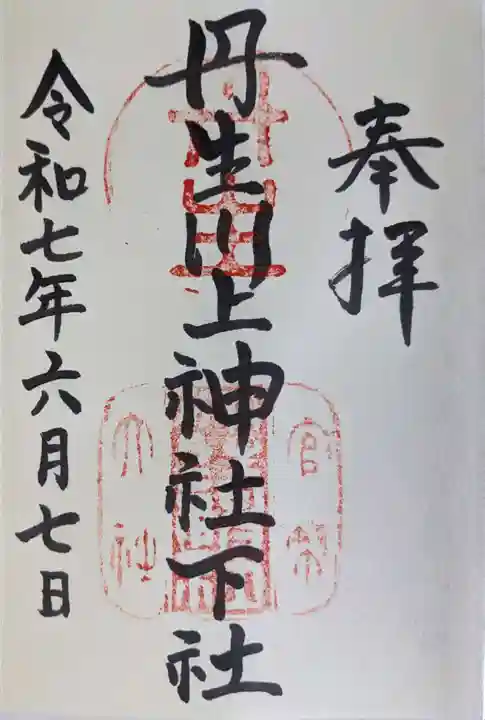 奉拝
丹生川上神社下社
令和七年六月七日
官幣
大社